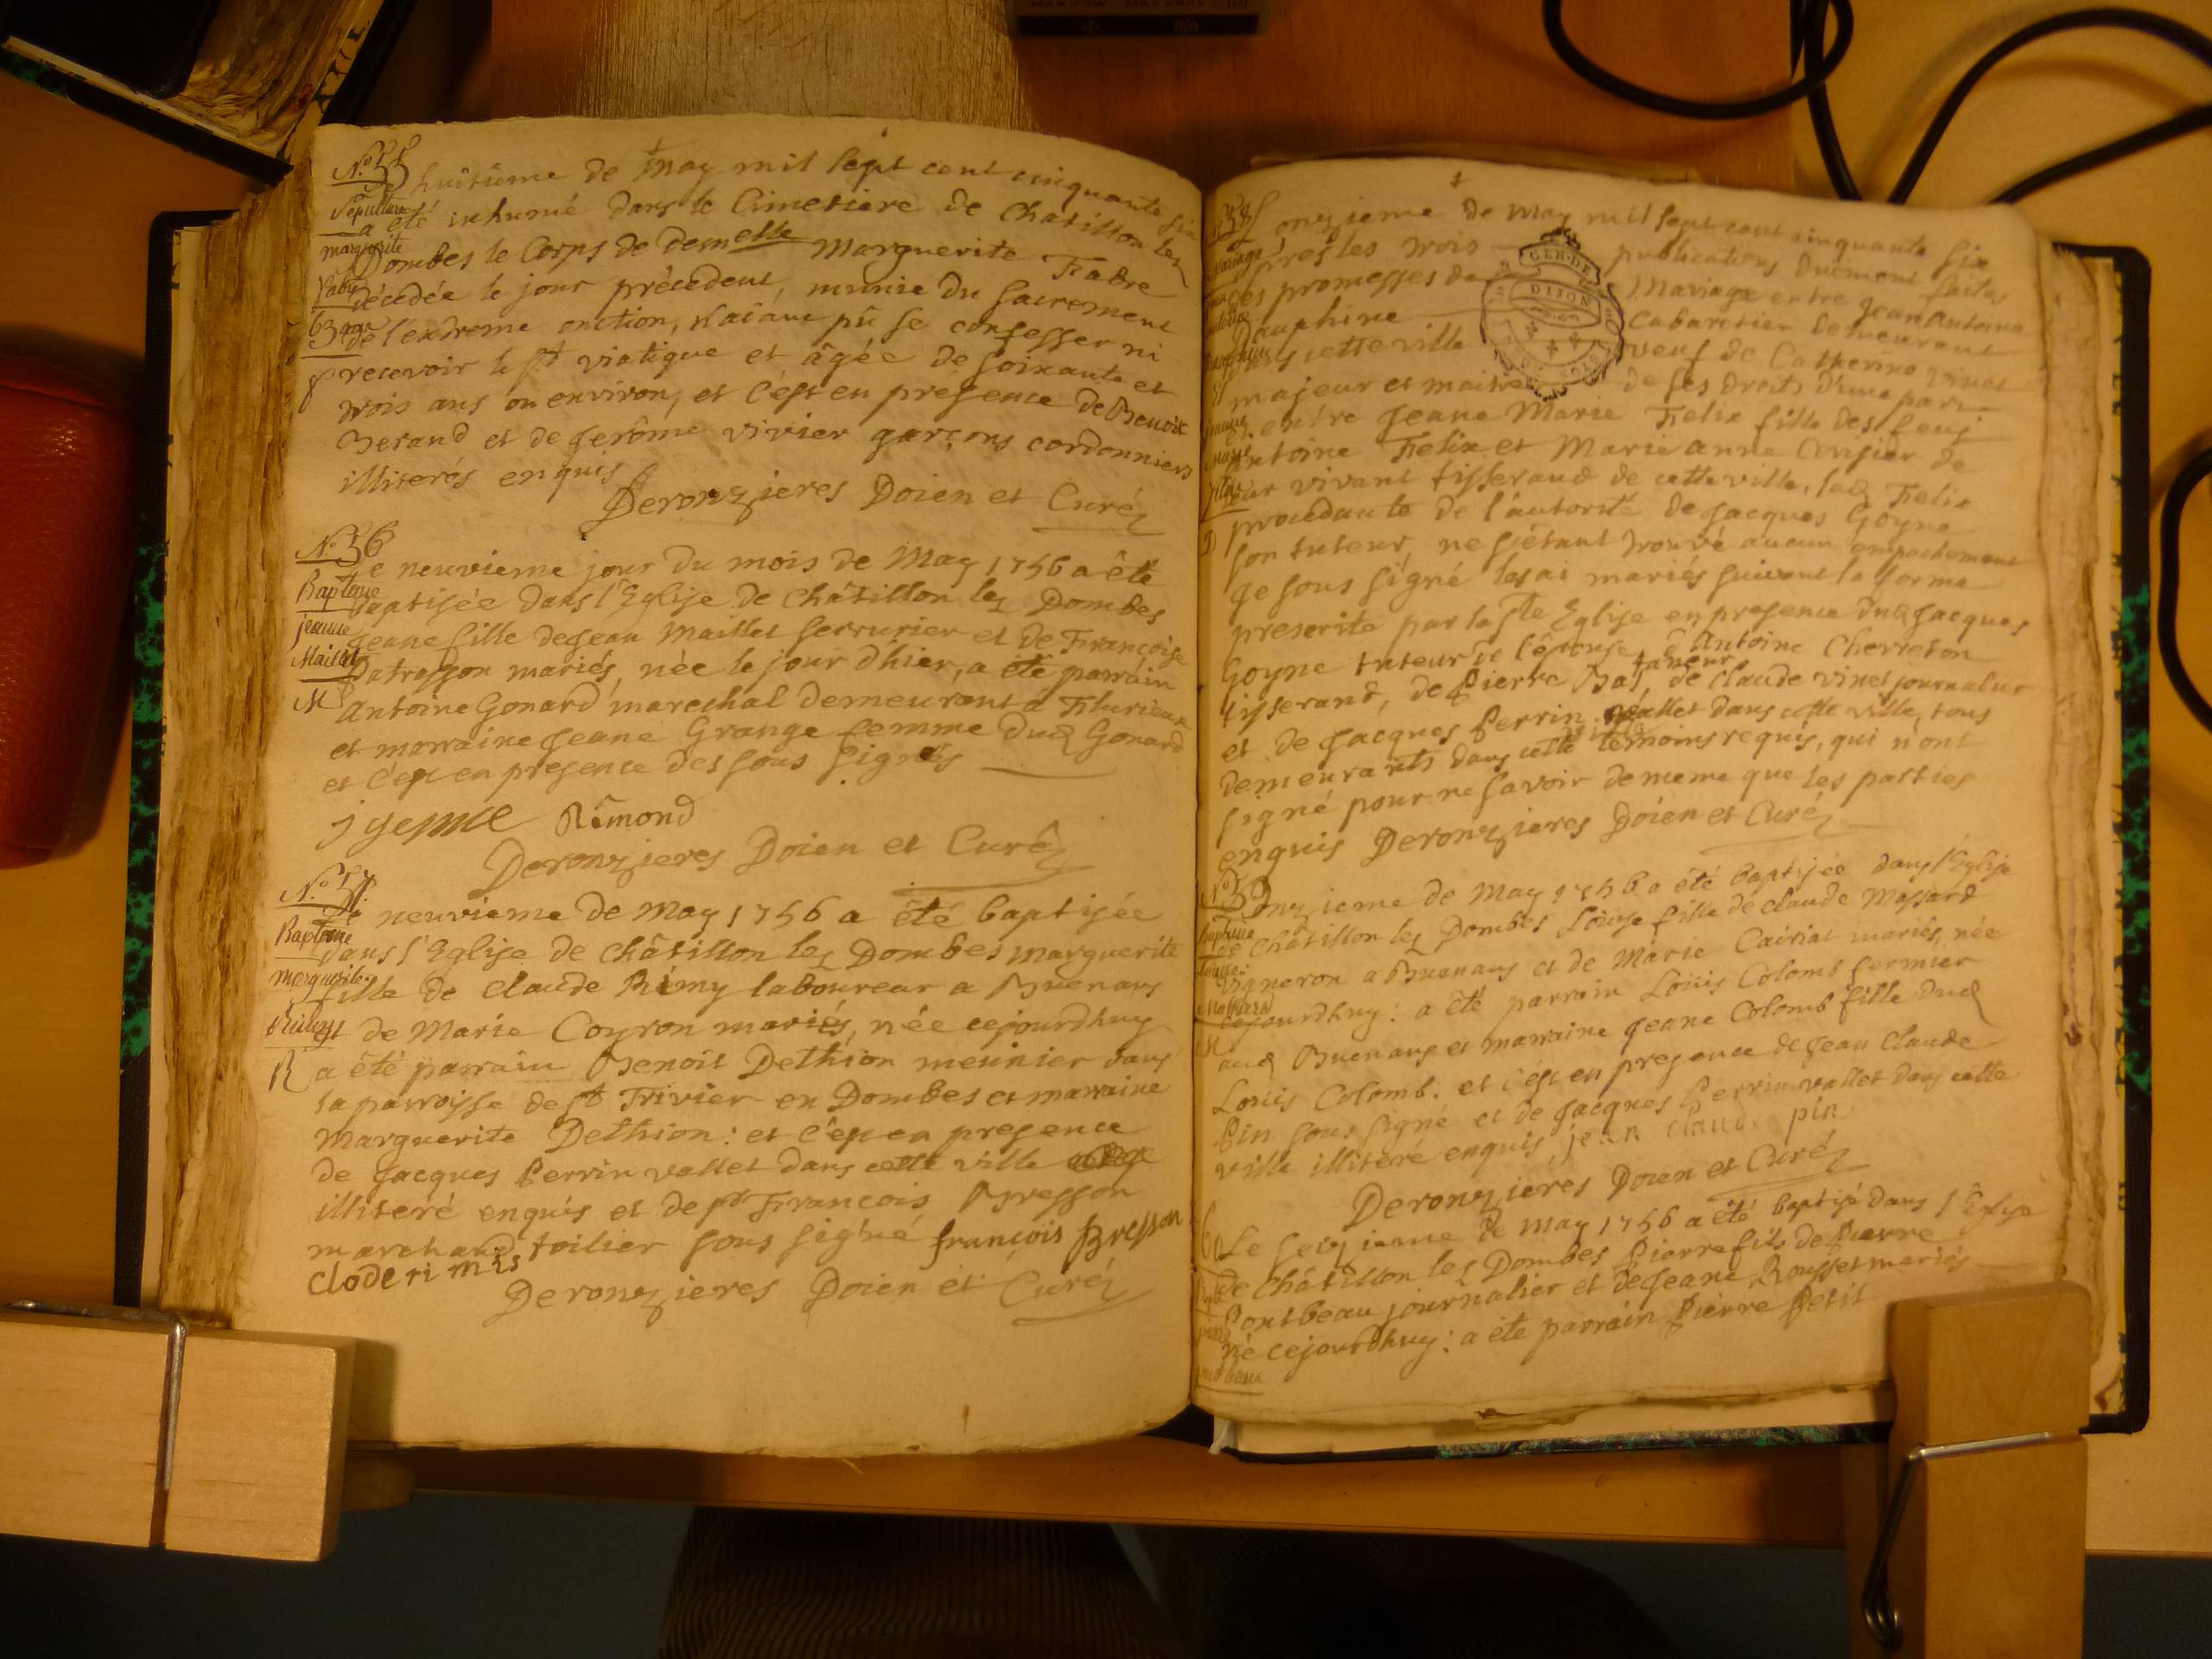 N.º 55
Le huitième de May mil sept cent cinquante six
Sepulture
a été inhumé dans le Cimetiere de Chatillon les
marguerite
Dombes le Corps de demelle Marguerite Fabre
fabre
décédée le jour précédent, munie du Sacrement
63 ans
de l'extreme onction, n'aiant pû se confesser ni
recevoir le st viatique et âgée de soixante et
trois ans ou environ, et c'est en presence de Benoit
Berand et de Jerôme vivier garçons cordonniers
illiterés enquis
Deronzieres Doien et Curé
N.º 56
Le neuvieme jour du mois de May 1756 a été
Baptême
baptisée dans l'Eglise de Châtillon les Dombes
jeanne
Jeane fille de Jean Maillet serrurier et de Françoise
Maillet
Patrasson mariés, née le jour d'hier, a été parrain
M
Antoine Gonard marechal demeurant a Flurieux
et marraine Jeane Grange femme dud Gonard
et c'est en presence des sous signés
Rémond
Deronzieres Doien et Curé
N.º 57.
Le neuvieme de May 1756 a été baptisée
Baptême
dans l'Eglise de Châtillon les Dombes Marguerite
marguerite
fille de Claude Rémy laboureur a Buenans
et de Marie Coyron mariés, née cejourdhuy
R
a été parrain Benoit Dethion meunier dans
la parroisse de st Trivier en Dombes et marraine
Marguerite Dethion : et c'est en presence
de Jacques Perrin vallet dans cette ville
illiteré enquis et de sr François Bresson
marchand toilier sous signé françois Bresson
clode ri mis
Deronzieres Doien et Curé
58
L'onzieme de May mil sept cent cinquante six
Mariage
après les trois publications duëment faites
jean
des promesses de Mariage entre Jean Antoine
antoine
Dauphine Cabaretier demeurant
dans cette ville veuf de Catherine vinet
et
majeur et maitre de ses droits d'une part
jeanne
et entre Jeane Marie Felix fille des feus
Marie
Antoine Felix et Marie anne Cirisier de
felix
leur vivant tisserand de cette ville, lad Felix
procedante de l'autorité de Jacques Goyne
D
son tuteur, ne s'étant trouvé aucun empechement
Je sous signé les ai mariés suivant la forme
prescrite par la ste Eglise en presence dud Jacques
Goyne tuteur de l'épouse, d'Antoine Cherreton
tisserand, de Pierre Bas taneur, de Claude vinet journalier
et de Jacques Perrin vallet dans cette ville, tous
demeurants dans cette ville temoins requis, qui n'ont
signé pour ne savoir de meme que les parties
enquis Deronzieres Doien et Curé
N.º 59
L'onzieme de May 1756 a été baptisée dans l'Eglise
Baptême
de Châtillon les Dombes Loüise fille de Claude Massard
vigneron a Buenans et de Marie Cairiat mariés, née
Massard
cejourdhuy : a été parrain Loüis Colomb fermier
M
aud Buenans et marraine Jeane Colomb fille dud
Loüis Colomb. et c'est en presence de Jean Claude
Pin sous signé et de Jacques Perrin vallet dans cette
ville illiteré enquis jean claude pin
Deronzieres Doien et Curé
60
Le seizieme de May 1756 a été baptisé dans l'Eglise
de Châtillon les Dombes Pierre fils de Pierre
Pontbeau journalier et de Jeane Rousset mariés
pierre
né cejourdhuy : a été parrain Pierre Petit
pontbeau
CER·DE
DIJON